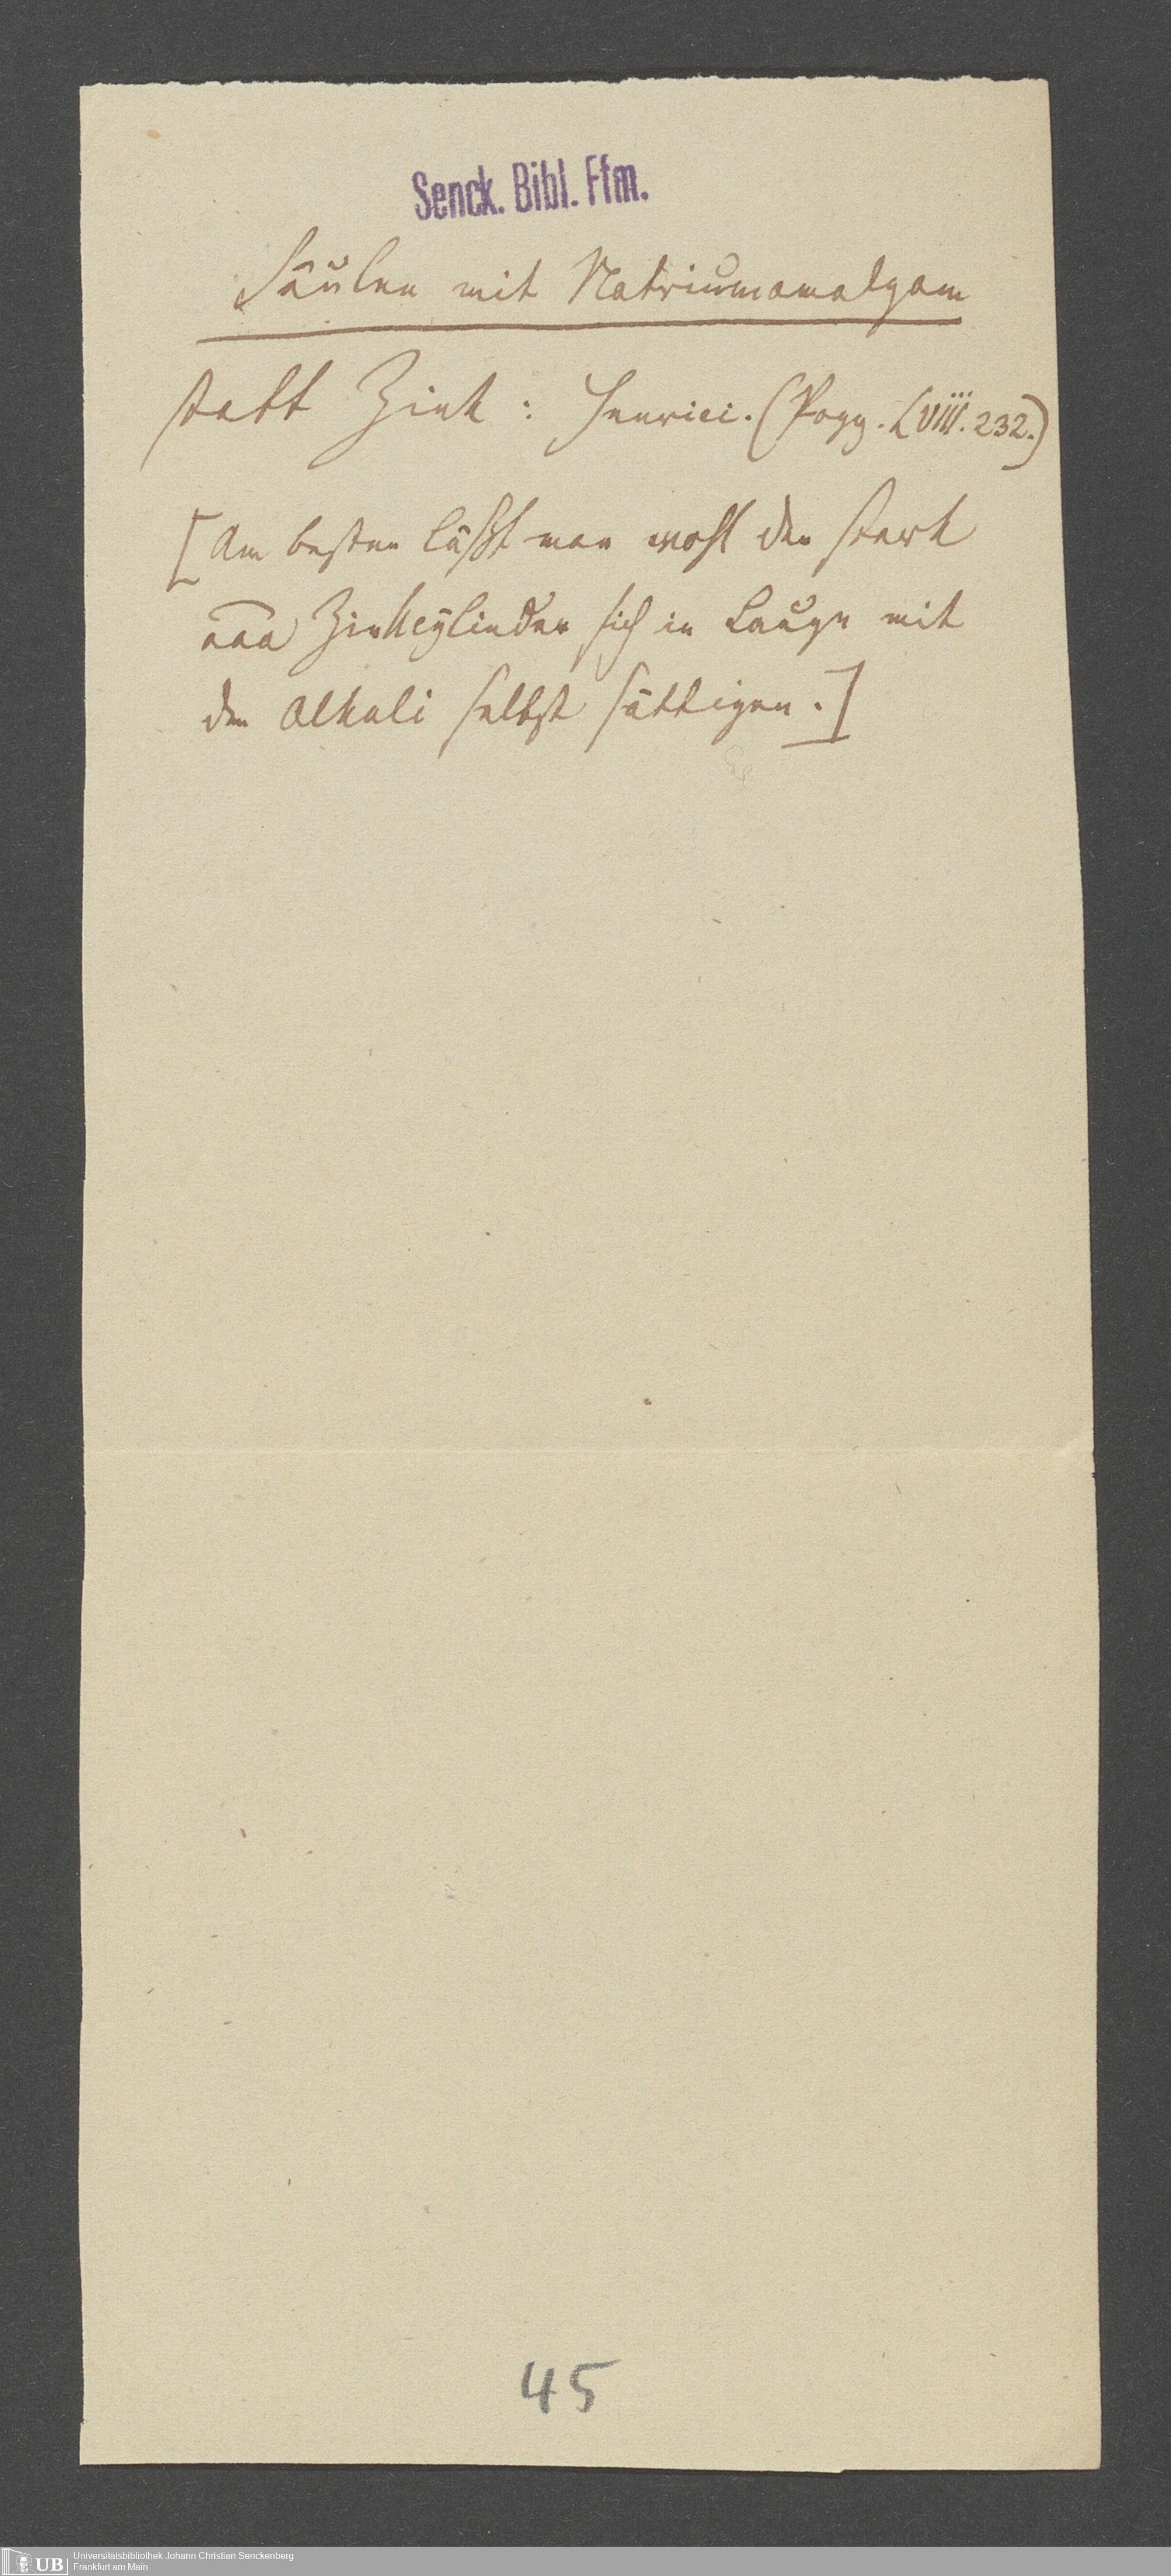 Senck. Bibl. Ffm.
Säulen mit Natriumamalgam
statt Zink: Henrici. (Pogg. LVIII. 232.)
[Am besten läßt man wohl den stark
aaa Zinkcylinder sich in Lauge mit
dem Alkali selbst sättigen.]
45
UB Universitätsbibliothek Johann Christian Senckenberg
Frankfurt am Main